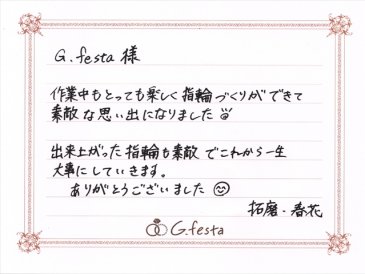 G.festa 様
作業中もとっても楽しく指輪づくりができて
素敵な思い出になりました
出来上がった指輪も素敵でこれから一生
大事にしていきます。
ありがとうございました
拓磨・春花
G.festa